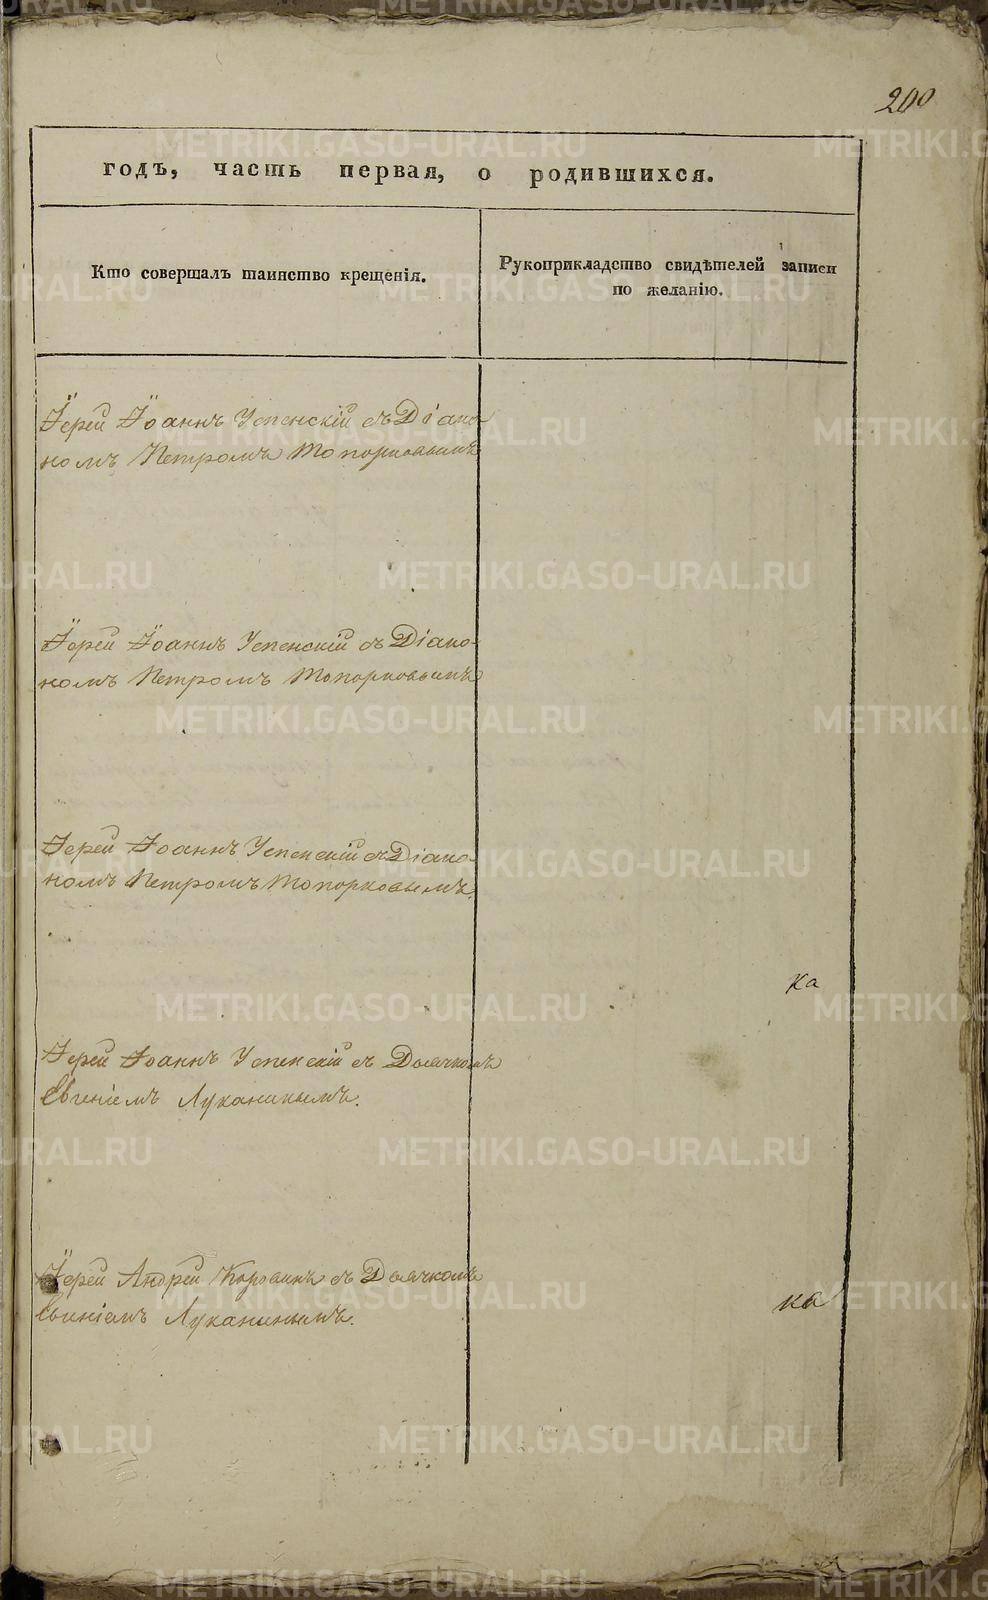 200
годъ, часть первая, о родившихся.
Кто совершалъ таинство крещенія.
Рукоприкладство свидѣтелей записи
по желанію.
Іерей Іоаннъ Успенскій съ Діако-
номъ Петромъ Топорковымъ
Іерей Іоаннъ Успенскій съ Діако-
номъ Петромъ Топорковымъ
Іерей Іоаннъ Успенскій съ Діако-
номъ Петромъ Топорковымъ.
ка
Іерей Іоаннъ Успенскій съ Дьячкомъ
Евгеніемъ Луканинымъ.
Іерей Андрей Коровинъ съ Дьячкомъ
Евгеніемъ Луканинымъ.
ка
METRIKI.GASO-URAL.RU